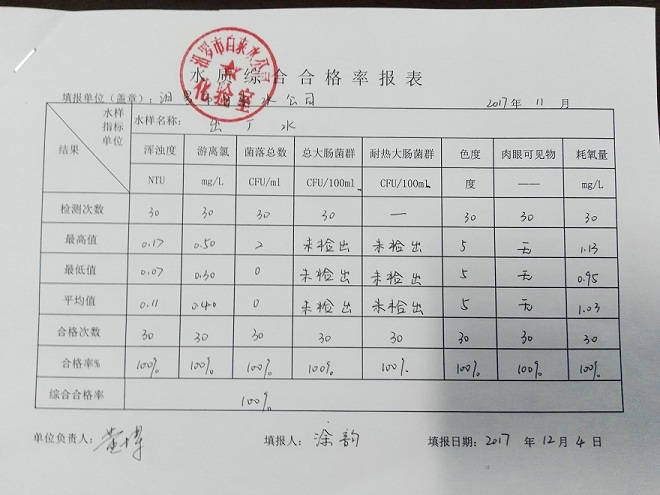 汨罗市自来水公司
化验室
水质综合合格率报表
填报单位(盖章): 汨罗市自来水公司 2017年 11 月
水样 指标 单位 结果 水样名称: 出厂水
浑浊度 游离氯 菌落总数 总大肠菌群 耐热大肠菌群 色度 肉眼可见物 耗氧量
NTU mg/L CFU/ml CFU/100ml CFU/100ml 度 —— mg/L
检测次数 30 30 30 30 — 30 30 30
最高值 0.17 0.50 2 未检出 未检出 5 无 1.13
最低值 0.07 0.30 0 未检出 未检出 5 无 0.95
平均值 0.11 0.40 0 未检出 未检出 5 无 1.03
合格次数 30 30 30 30 30 30 30 30
合格率% 100% 100% 100% 100% 100% 100% 100% 100%
综合合格率 100%
单位负责人: 填报人: 涂韵 填报日期: 2017 年 12 月 4 日